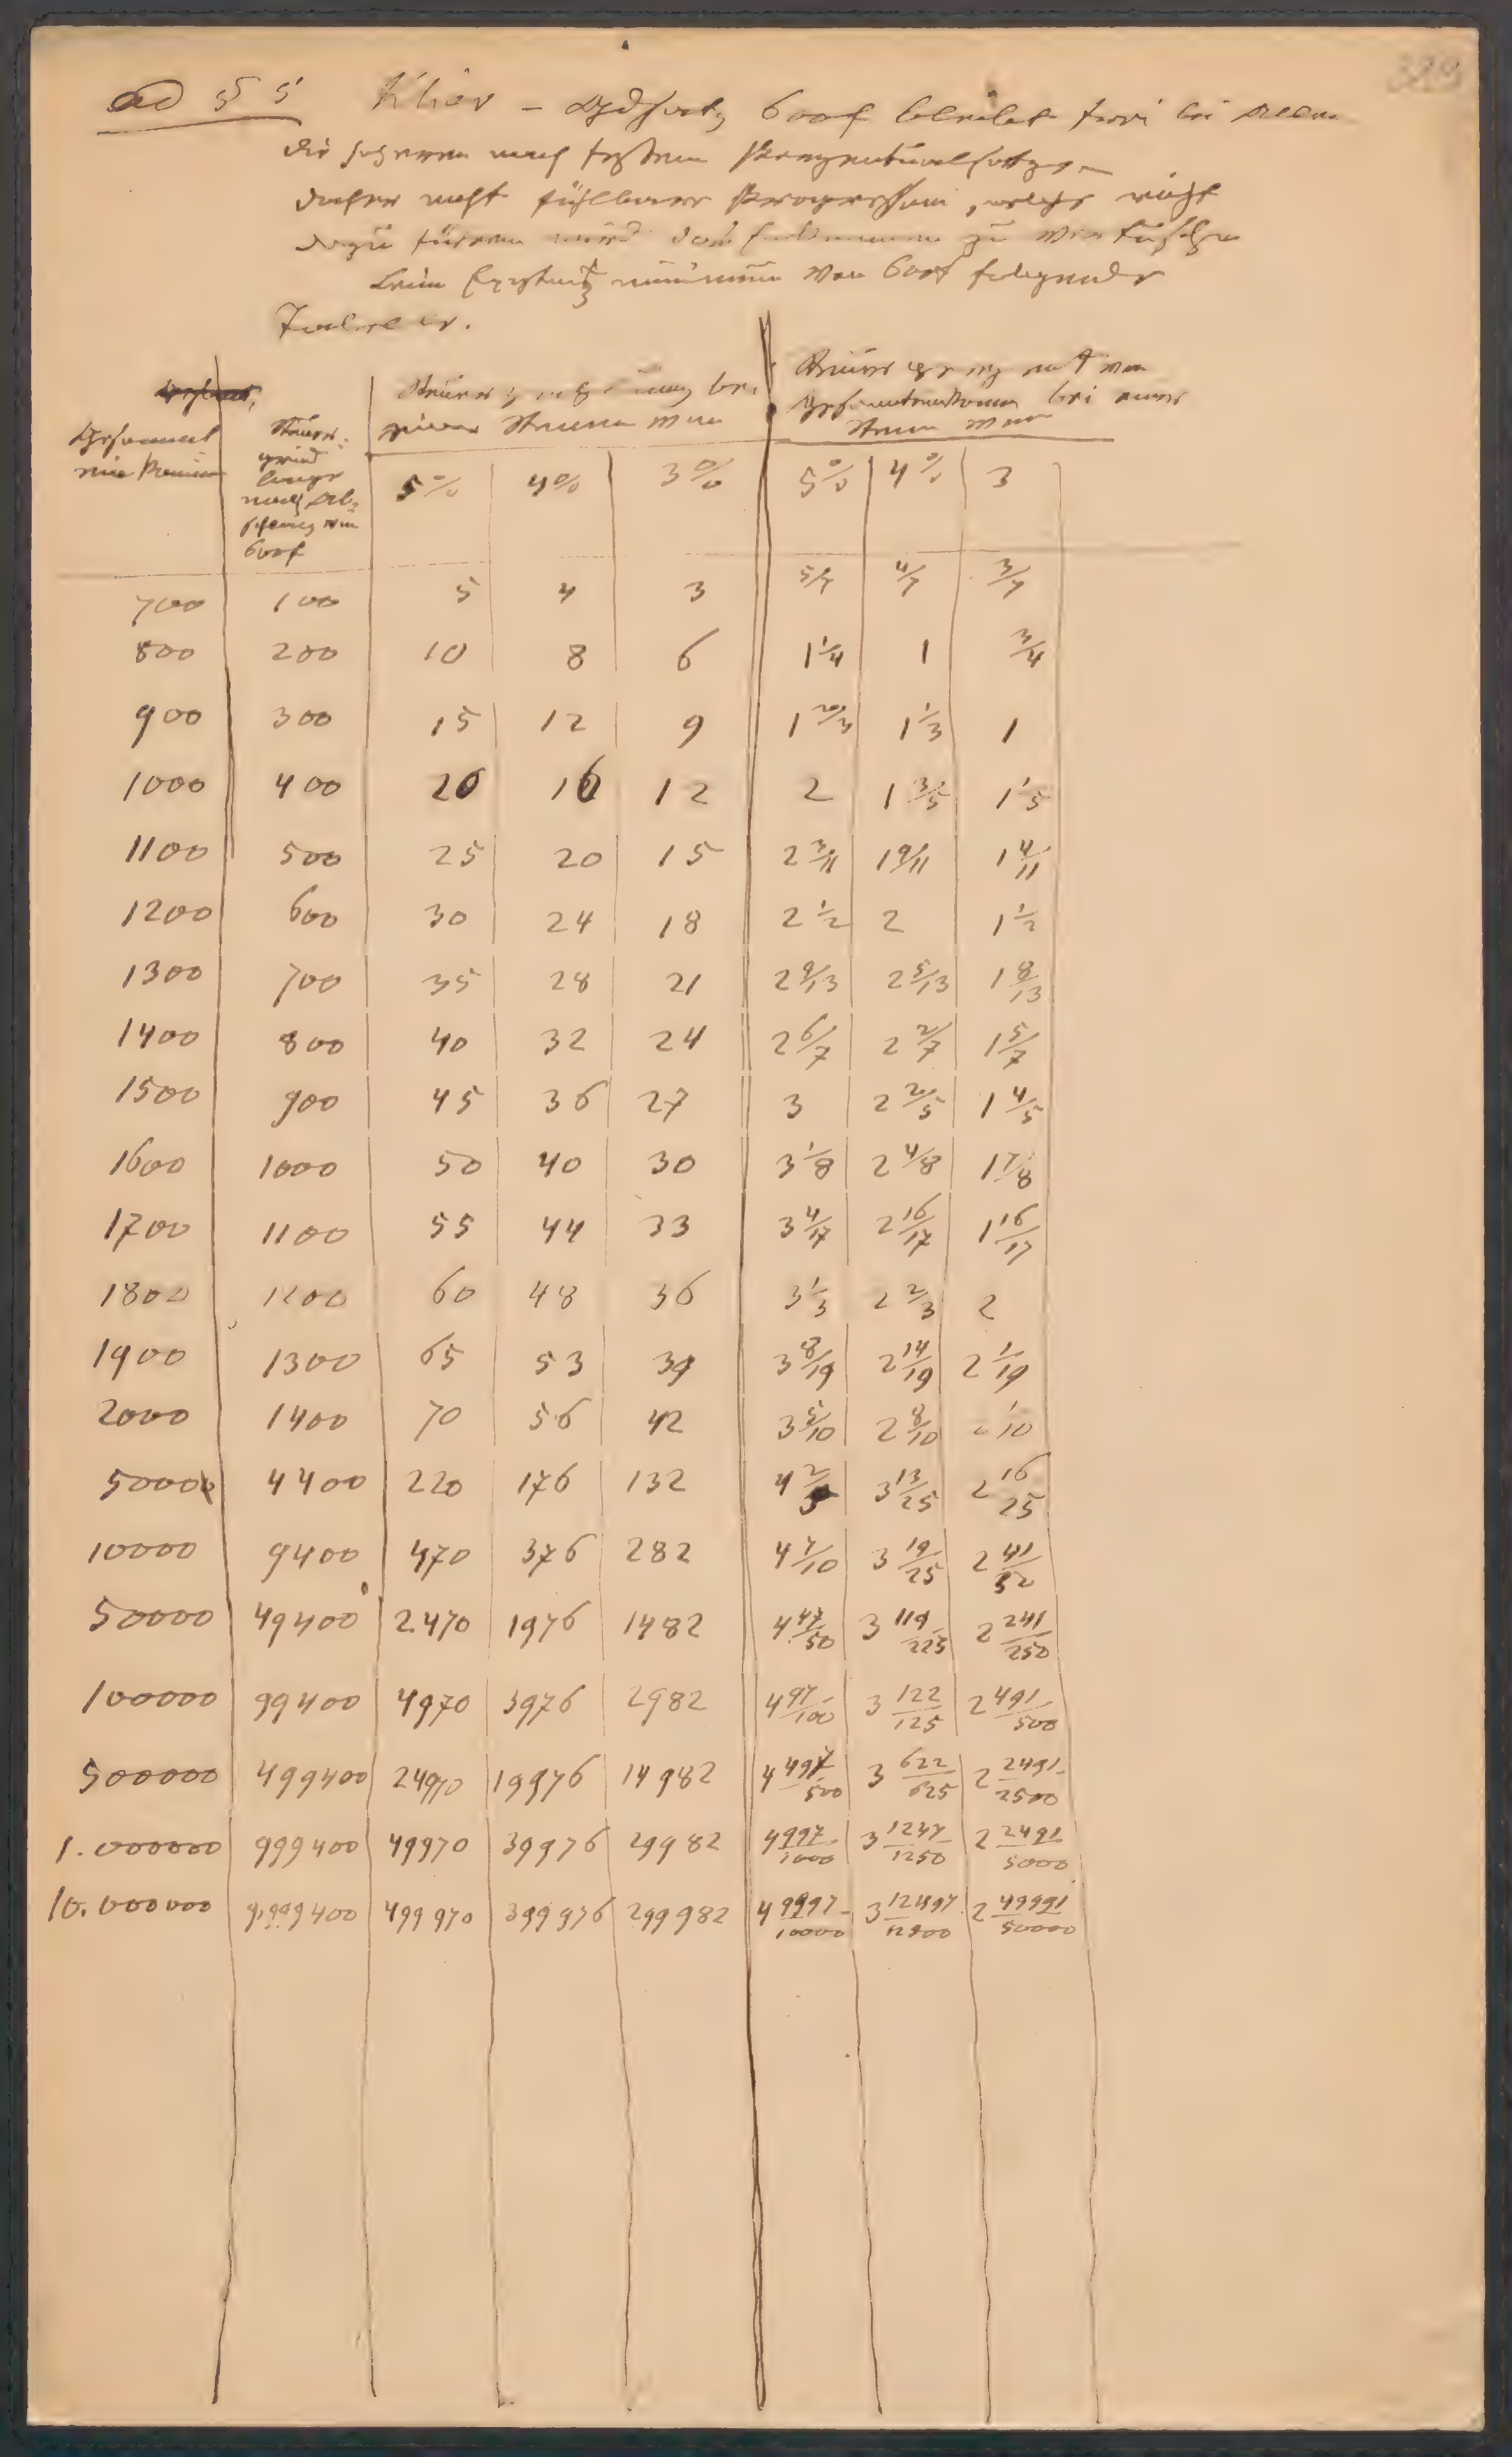 389
ad § 5
600 f bleibt frei bei allen
die höheren nach festem Prozentualsatze
daher nicht fühlbare Progression, welche nicht
dazu führen wird das zu
beim Existenzminimum von 600 f folgende
Tabelle.
Gesammt
Steuer-
grund
lage
nach Ab-
von
600 f
Steuer bei
einer Steuer von
Steuer von
Gesammteinkommen bei einer
Steuer von
5% 4% 3% 5% 4% 3
700 100 5 4 3 5/7 4/7 3/7
800 200 10 8 6 1 1/4 1 3/4
900 300 15 12 9 1 2/3 1 1/3 1
1000 400 20 16 12 2 1 3/5 1 1/5
1100 500 25 20 15 2 3/11 1 9/11 1 4/11
1200 600 30 24 18 2 1/2 2 1 1/2
1300 700 35 28 21 2 9/13 2 5/13 1 8/13
1400 800 40 32 24 2 6/7 2 2/7 1 5/7
1500 900 45 36 27 3 2 2/5 1 4/5
1600 1000 50 40 30 3 1/8 2 4/8 1 7/8
1700 1100 55 44 33 3 4/17 2 16/17 1 16/17
1800 1200 60 48 36 3 1/3 2 2/3 2
1900 1300 65 53 39 3 8/19 2 14/19 2 1/19
2000 1400 70 56 42 3 5/10 2 8/10 2 1/10
5000 4400 220 176 132 4 2/5 3 13/25 2 16/25
10000 9400 470 376 282 4 7/10 3 19/25 2 41/50
50000 49400 2470 1976 1482 4 47/50 3 119/225 2 241/250
100000 99400 4970 3976 2982 4 97/100 3 122/125 2 491/500
500000 499400 24970 19976 14982 4 497/500 3 622/625 2 2491/2500
1.000000 999400 49970 39976 29982 4 997/1000 3 1247/1250 2 2491/5000
10.000000 9,999400 499970 399976 299982 4 9997/10000 3 12497/12500 2 49991/50000